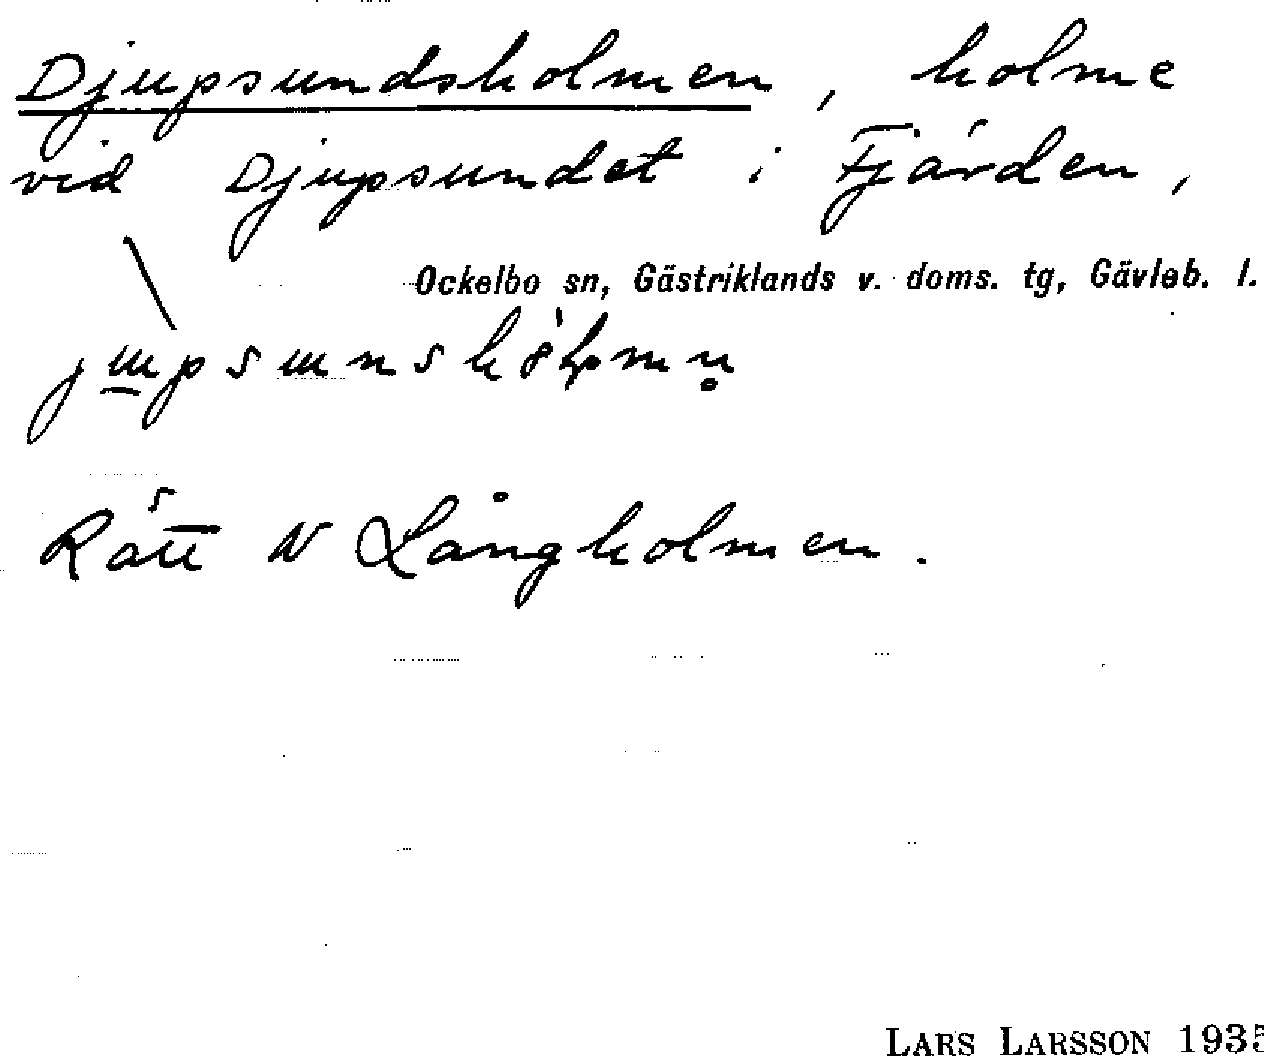 Djupsundsholmen, holme
vid Djupsundet i Fjärden,
Ockelbo sn, Gästriklands v. doms. tg, Gävleb. l.
Rätt N Långholmen.
LARS LARSSON 1935